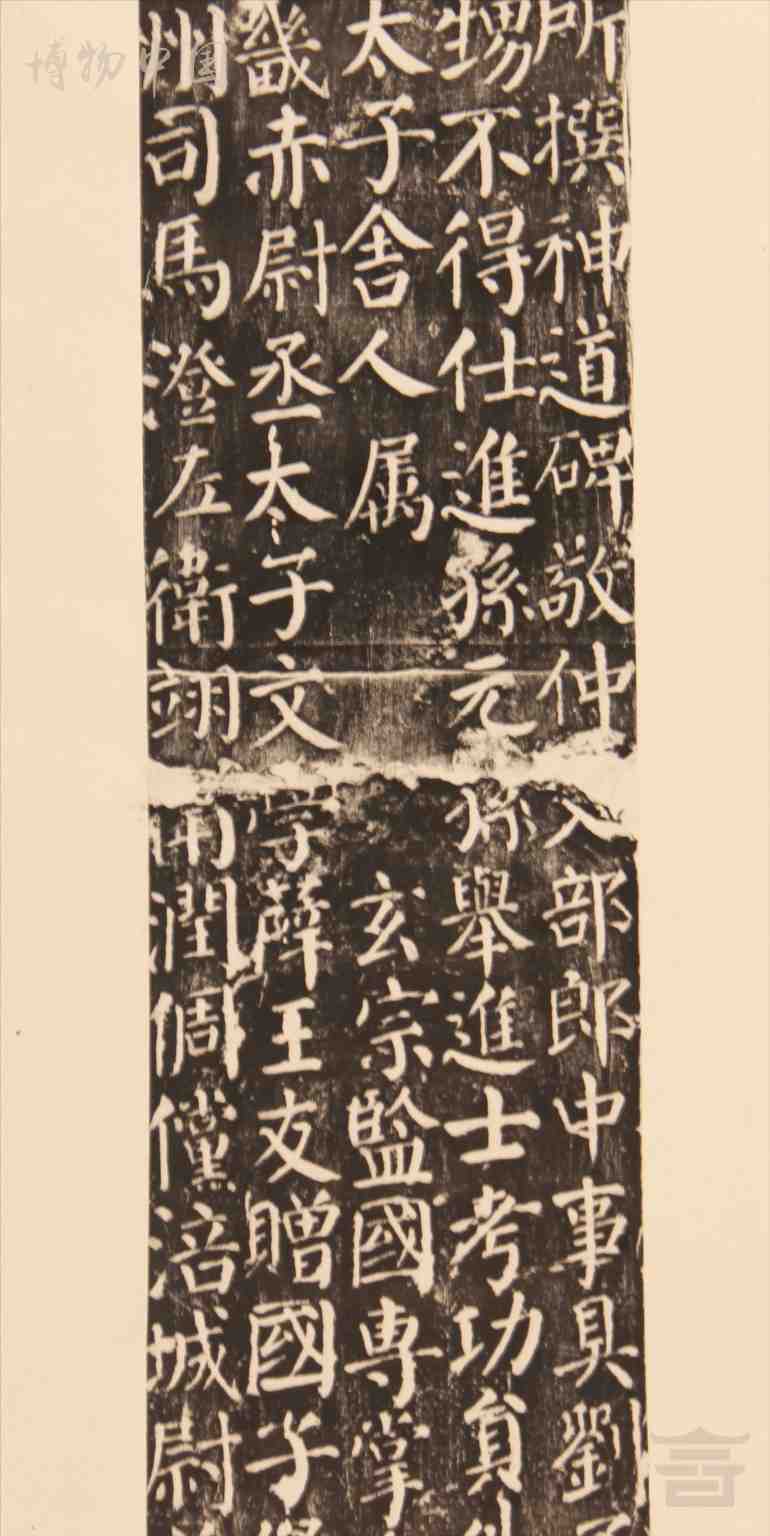 所撰神道碑敬仲
部郎中事具劉
甥不得仕進孫元
孫舉進士考功員
太子舍人属
玄宗監國專掌
畿赤尉丞太子文
學薛王友贈國子
州司馬澄左衛翊
潤倜儻涪城尉
博物中国